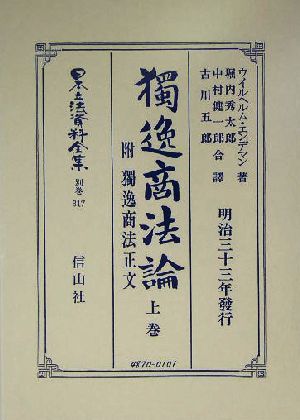 ウイルヘルム・エンデマン 著
堀内秀太郎
中村健一郎 合譯
古川五郎
明治三十三年發行
獨逸商法論 上巻
附 獨逸商法正文
日本立法資料全集
別巻
317
信山社